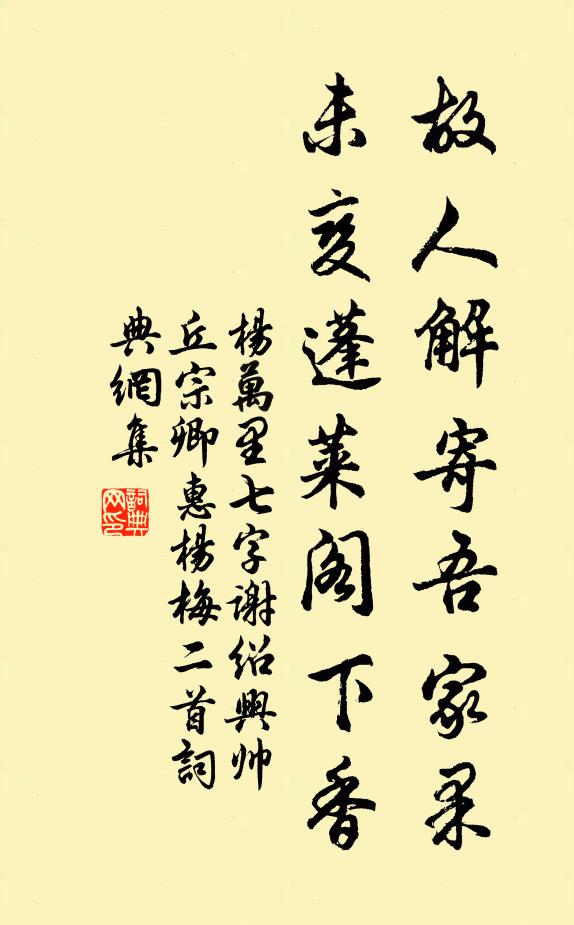 故人解寄吾家果
未變蓬萊閣下香
楊萬里七字謝紹興帅
丘宗卿惠楊梅二首詞
典網集
詞典网印